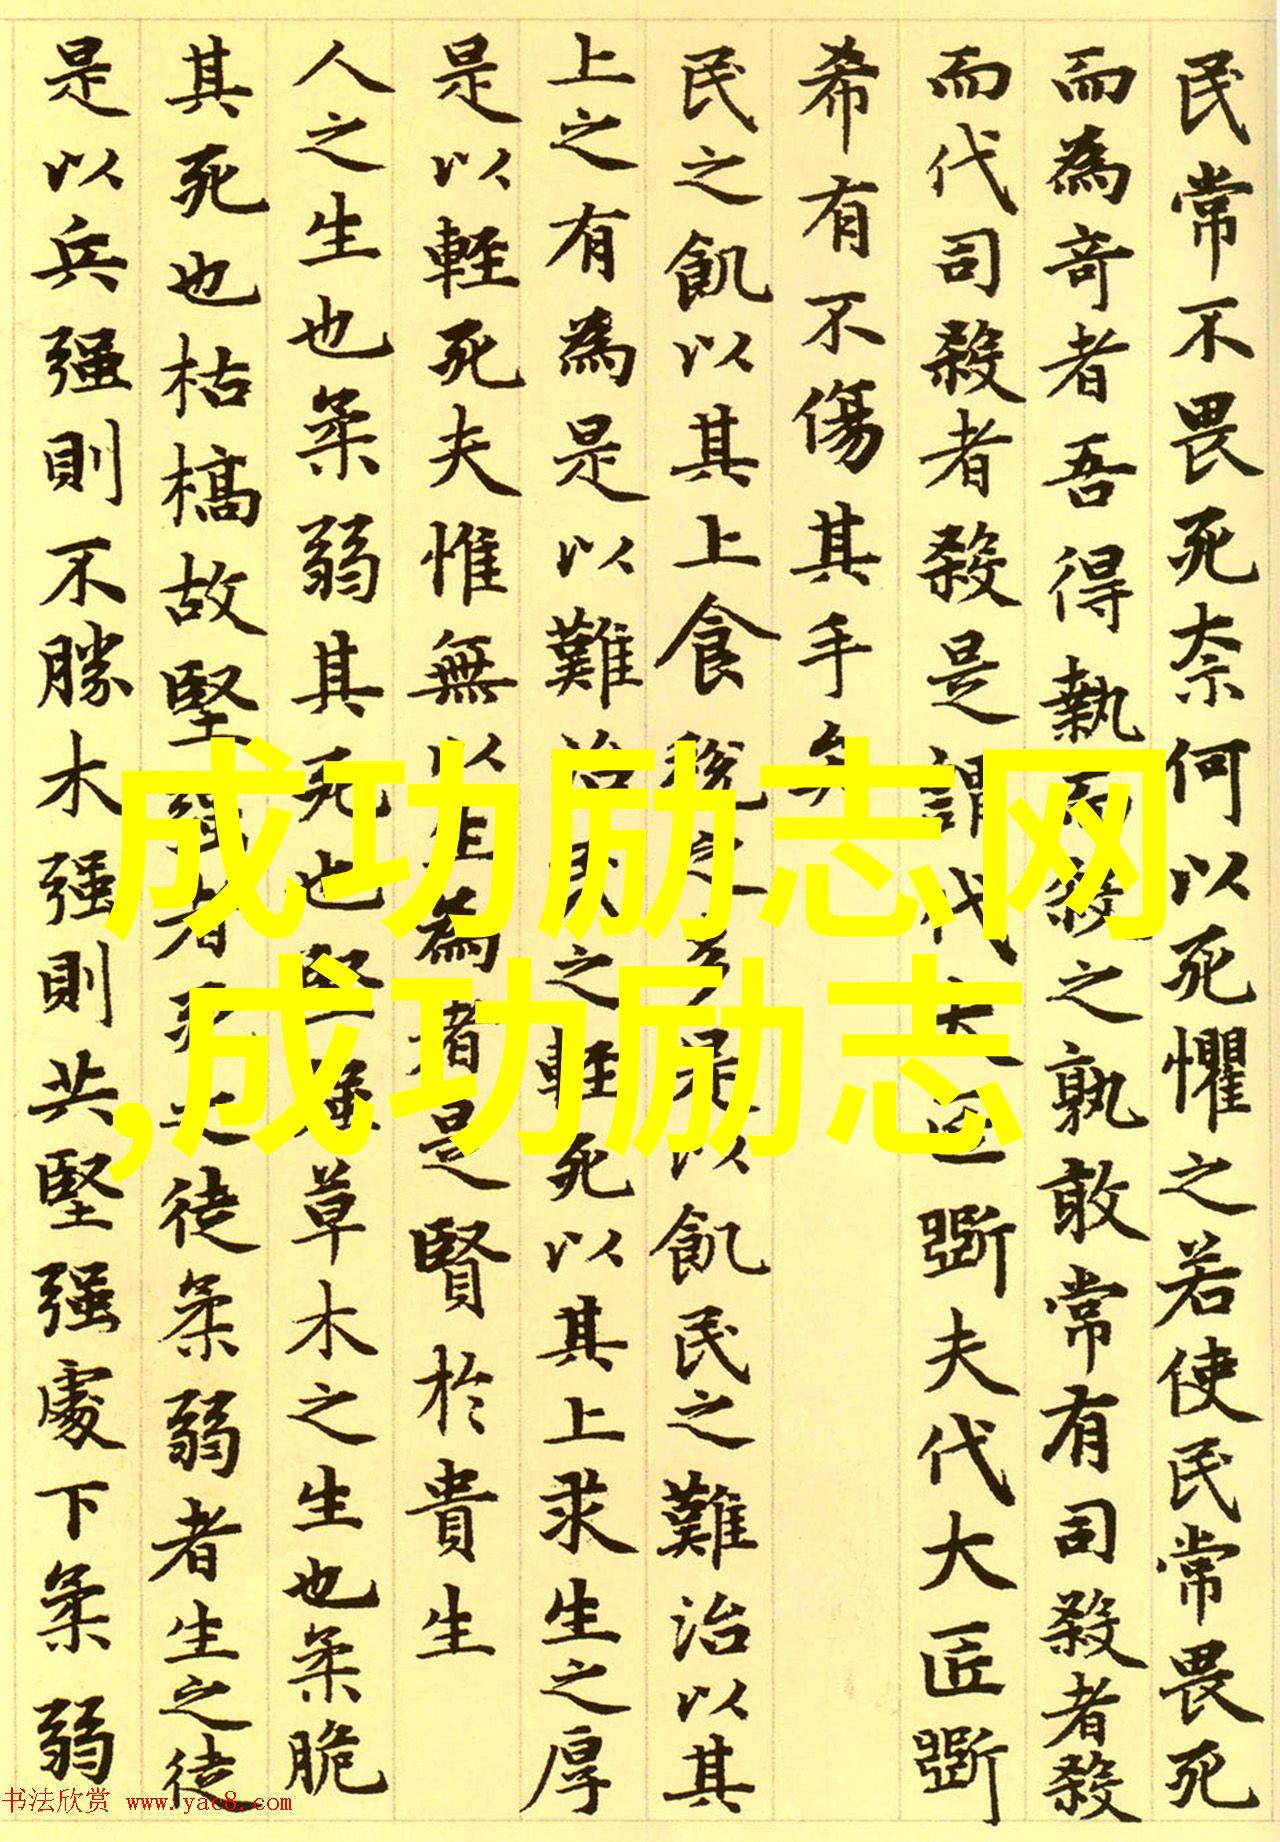 民常不畏死奈何以死懼之若使民常畏死
而為奇者吾得執而殺之孰敢常有司殺者殺
而代司殺者殺是謂代大匠斵夫代大匠斵
希有不傷其手矣
民之飢以其上食稅之多是以飢民之難治以其
上之有為是以難治民之輕死以其上求生之厚
是以輕死夫惟無以生為者是賢於貴生
人之生也柔弱其死也堅强草木之生也柔脆
其死也枯槁故堅强者死之徒柔弱者生之徒
是以兵强則不勝木强則共堅强處下柔弱
成功励志网
,成功励志
书法欣赏 www.yac8.com